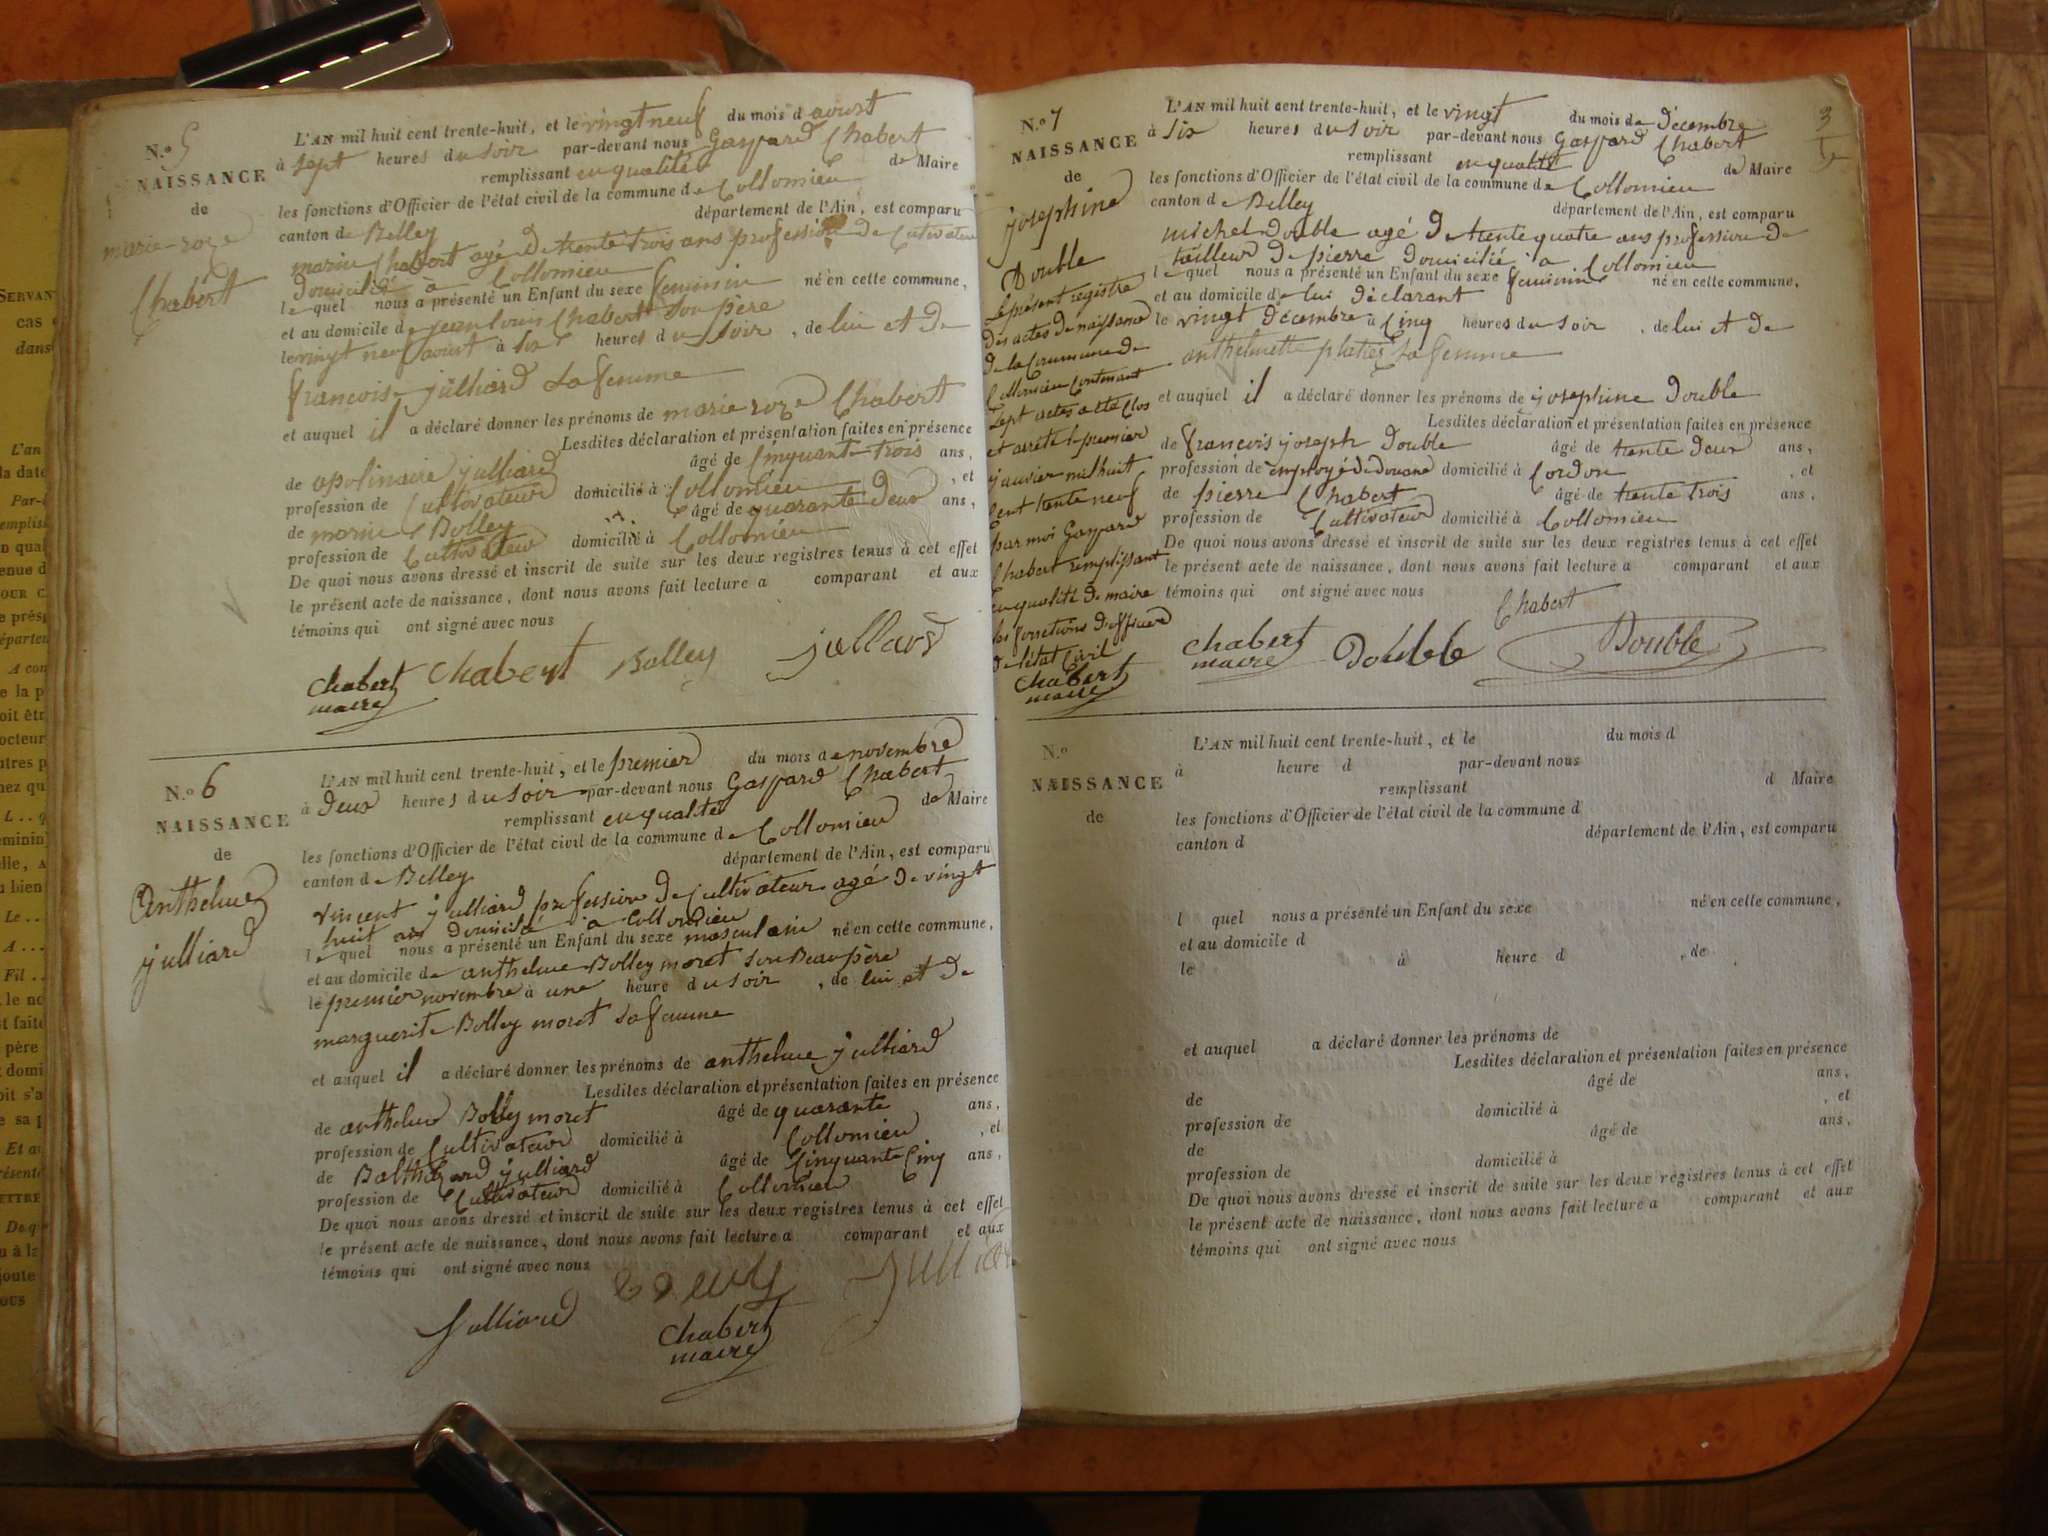 N.º 5
NAISSANCE
de
marie-roze
Chabert
L'AN mil huit cent trente-huit, et le vingt neuf du mois d aoust
à sept heures du soir par-devant nous Gaspard Chabert
remplissant en qualité de Maire
les fonctions d'Officier de l'état civil de la commune de Collomieu
canton de Belley département de l'Ain, est comparu
marin Chabert agé de trente trois ans profession de Cultivateur
domicilié a Collomieu
le quel nous a présenté un Enfant du sexe feminin né en cette commune,
et au domicile de jean louis Chabert son père
le vingt neuf aoust à six heures du soir, de lui et de
francoise julliard sa femme
et auquel il a déclaré donner les prénoms de marie roze Chabert
Lesdites déclaration et présentation faites en présence
de apolinaire julliard âgé de Cinquante trois ans,
profession de Cultivateur domicilié à Collomieu, et
de marin Bolley âgé de quarante deux ans,
profession de Cultivateur domicilié à Collomieu
De quoi nous avons dressé et inscrit de suite sur les deux registres tenus à cet effet
le présent acte de naissance, dont nous avons fait lecture a comparant et aux
témoins qui ont signé avec nous
Chabert Chabert Bolley
maire
N.º 6
NAISSANCE
de
Anthelme
julliard
L'AN mil huit cent trente-huit, et le premier du mois de novembre
à deux heures du soir par-devant nous Gaspard Chabert
remplissant en qualité de Maire
les fonctions d'Officier de l'état civil de la commune de Collomieu
canton de Belley département de l'Ain, est comparu
vincent julliard profession de Cultivateur agé de vingt
huit ans domicilé a Collomieu
le quel nous a présenté un Enfant du sexe masculain né en cette commune,
et au domicile de anthelme Bolley moret son Beau père
le premier novembre à une heure du soir, de lui et de
marguerite Bolley moret sa femme
et auquel il a déclaré donner les prénoms de anthelme julliard
Lesdites déclaration et présentation faites en présence
de anthelme Bolley moret âgé de quarante ans,
profession de Cultivateur domicilié à Collomieu, et
de Balthazard julliard âgé de Cinquante Cinq ans,
profession de Cultivateur domicilié à Collomieu
De quoi nous avons dressé et inscrit de suite sur les deux registres tenus à cet effet
le présent acte de naissance, dont nous avons fait lecture a comparant et aux
témoins qui ont signé avec nous
Julliard
Chabert
maire
3
N.º 7
NAISSANCE
de
josephine
Double
L'AN mil huit cent trente-huit, et le vingt du mois de décembre
à six heures du soir par-devant nous Gaspard Chabert
remplissant en qualité de Maire
les fonctions d'Officier de l'état civil de la commune de Collomieu
canton de Belley département de l'Ain, est comparu
michel double agé de trente quatre ans profession de
tailleur de pierre domicilié a Collomieu
le quel nous a présenté un Enfant du sexe feminin né en cette commune,
et au domicile de lui déclarant
le vingt décembre à Cinq heures du soir, de lui et de
anthelmette sa femme
et auquel il a déclaré donner les prénoms de josephine Double
Lesdites déclaration et présentation faites en présence
de francois joseph Double âgé de trente deux ans,
profession de employé de douane domicilié à Cordon, et
de pierre Chabert âgé de trente trois ans,
profession de Cultivateur domicilié à Collomieu
De quoi nous avons dressé et inscrit de suite sur les deux registres tenus à cet effet
le présent acte de naissance, dont nous avons fait lecture a comparant et aux
témoins qui ont signé avec nous
Chabert
Chabert Double Double
maire
Le présent registre
des actes de naissance
de la Commune de
Collomieu Contenant
sept actes a été Clos
et arrété le premier
janvier mil huit
cent trente neuf
par moi Gaspard
Chabert remplissant
en qualité de maire
les fonctions d'officier
de l'état Civil
Chabert
maire
N.º
NAISSANCE
de
L'AN mil huit cent trente-huit, et le du mois d
à heure d par-devant nous
remplissant d Maire
les fonctions d'Officier de l'état civil de la commune d
canton d département de l'Ain, est comparu
l quel nous a présenté un Enfant du sexe né en cette commune,
et au domicile d
le à heure d , de
et auquel a déclaré donner les prénoms de
Lesdites déclaration et présentation faites en présence
de âgé de ans,
profession de domicilié à , et
de âgé de ans,
profession de domicilié à
De quoi nous avons dressé et inscrit de suite sur les deux registres tenus à cet effet
le présent acte de naissance, dont nous avons fait lecture a comparant et aux
témoins qui ont signé avec nous